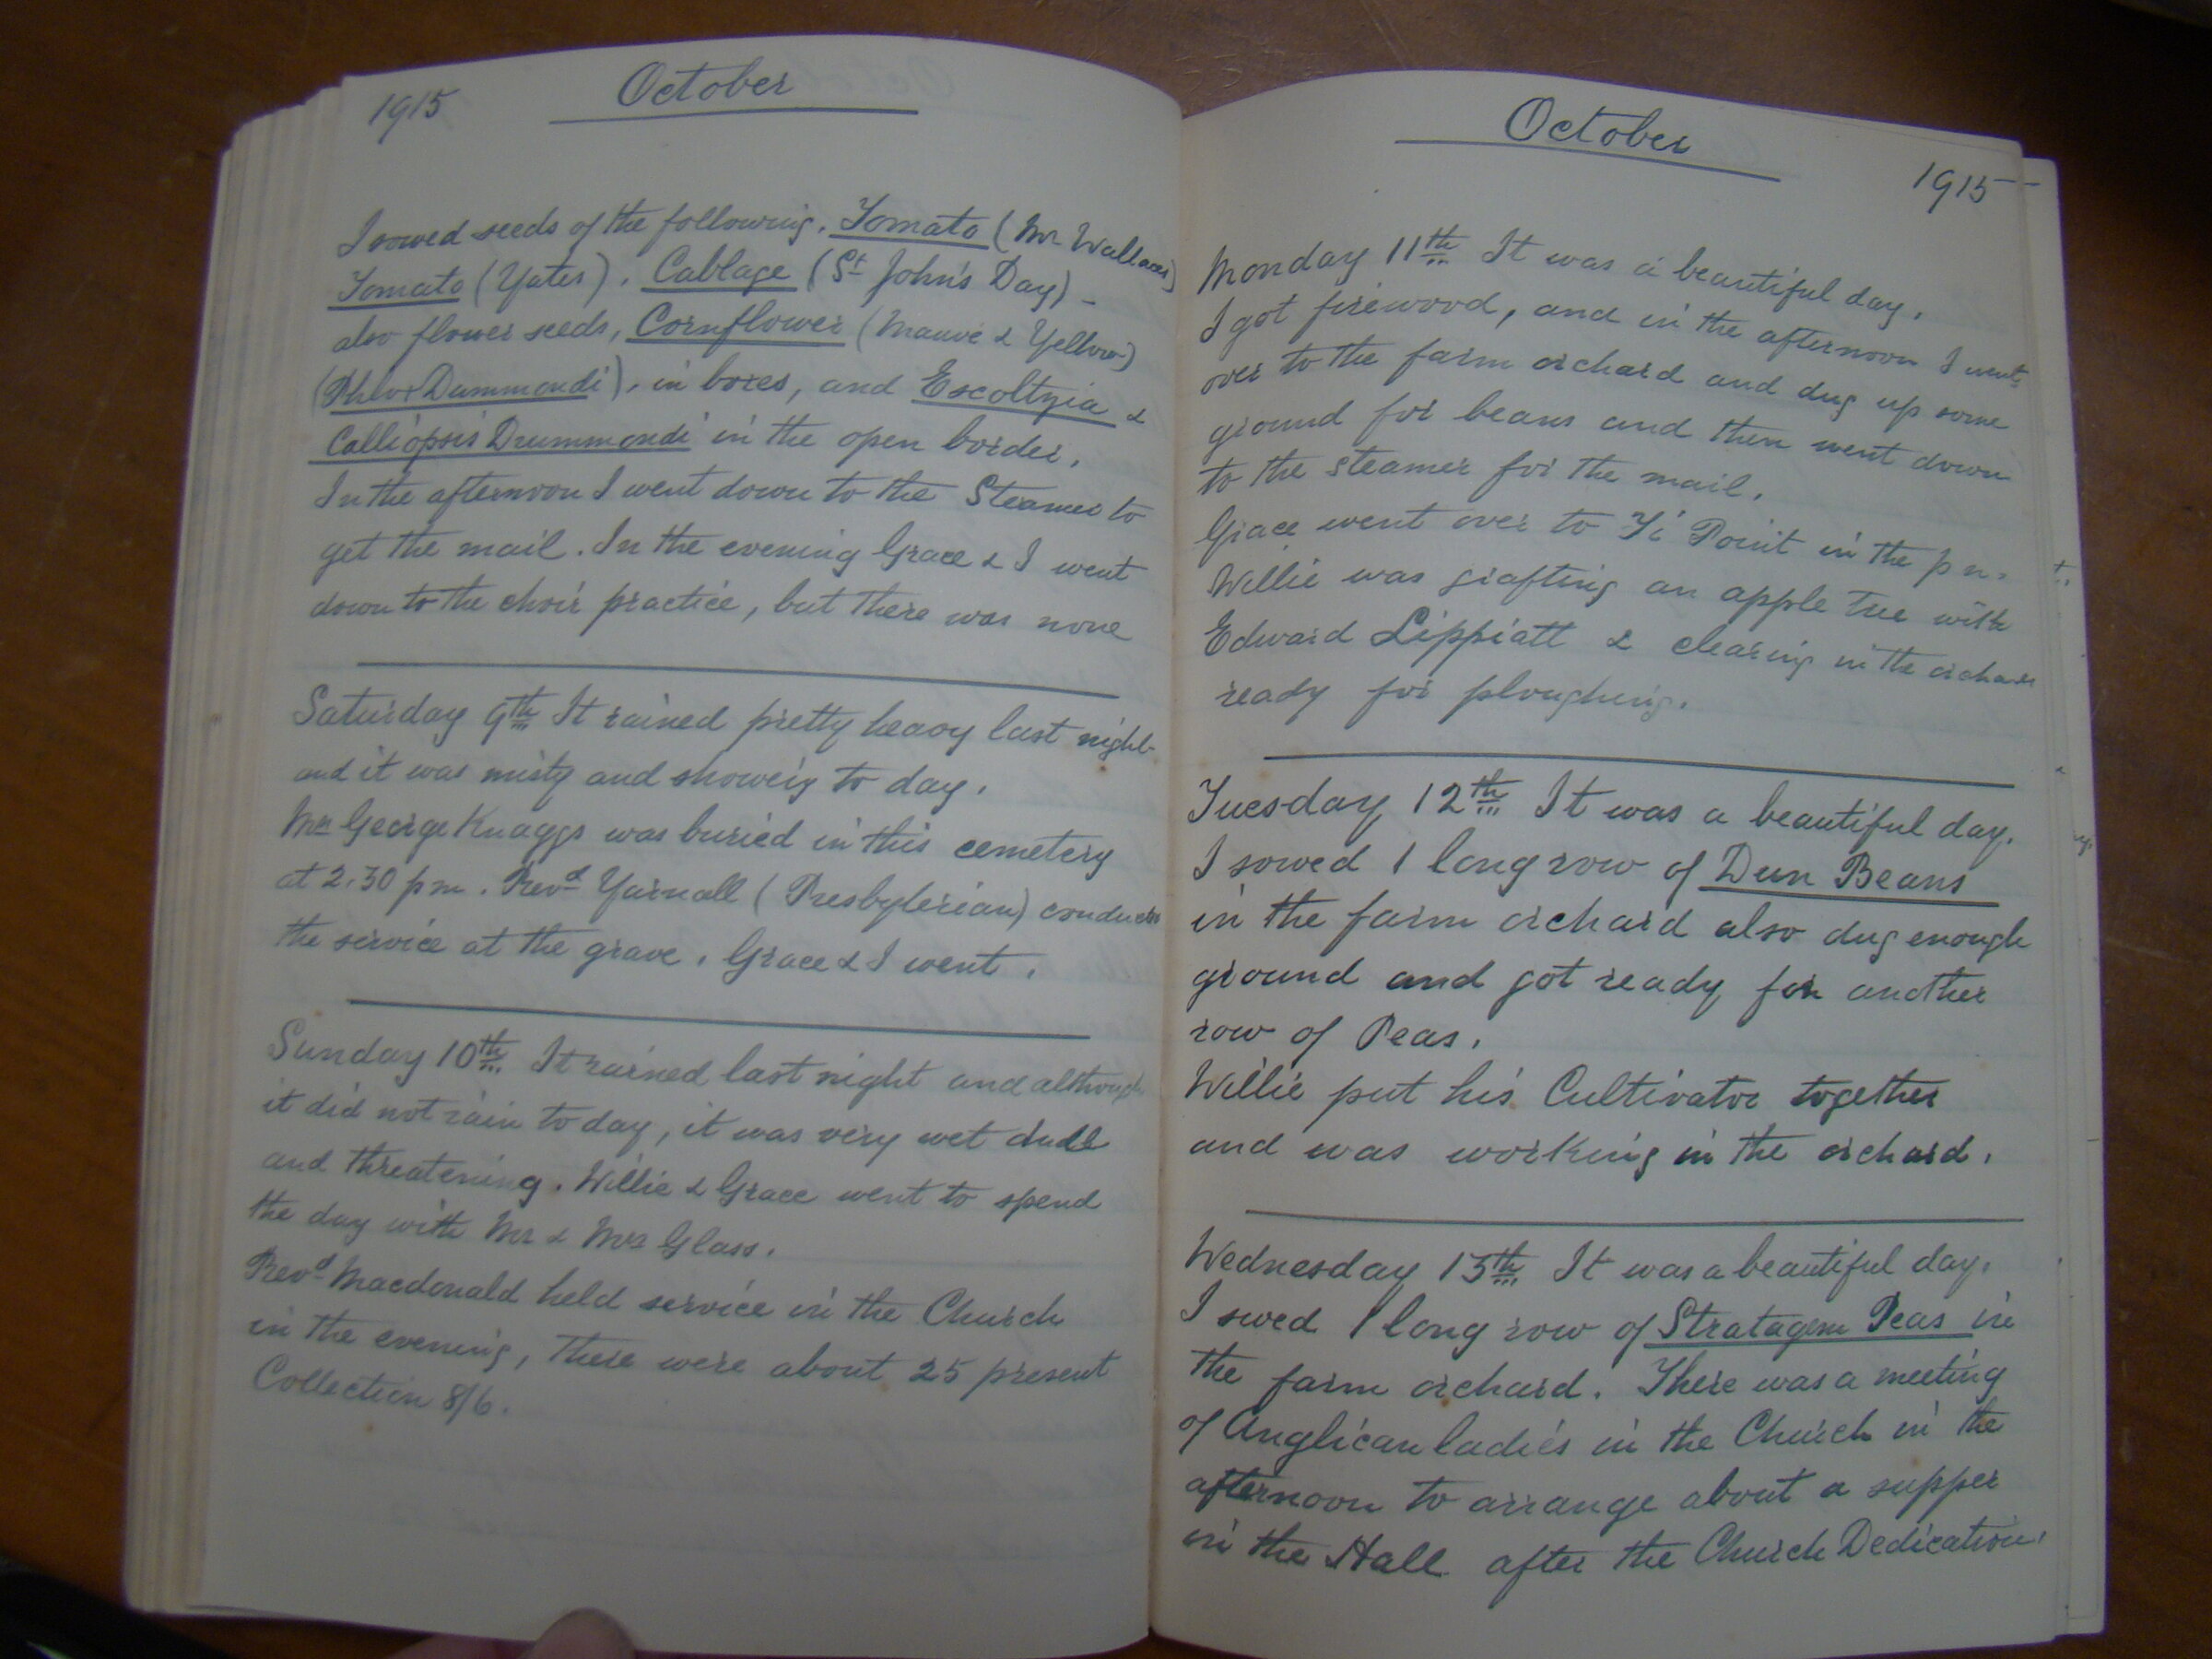 1915 October
I sowed seeds of the following. Tomato (Mr Wallaces)
Tomato (Yates). Cabbage (St John's Day) –
also flower seeds, Cornflower (Mauve & Yellow)
(Phlox Dummondi), in boxes, and Escoltzia &
Calliopsis Drummondi in the open border.
In the afternoon I went down to the Steamer to
get the mail. In the evening Grace & I went
down to the choir practice, but there was none
Saturday 9th It rained pretty heavy last night
and it was misty and showery to day.
George Knaggs was buried in this cemetery
at 2.30 pm. Revd Yarnall (Presbyterian) conducted
the service at the grave. Grace & I went.
Sunday 10th It rained last night and although
it did not rain to day, it was very wet dull
and threatening. Willie & Grace went to spend
the day with Mr & Mrs Glass.
Revd Macdonald held service in the Church
in the evening, there were about 25 present
Collection 8/6.
October
1915
Monday 11th It was a beautiful day.
I got firewood, and in the afternoon I went
over to the farm orchard and dug up some
ground for beans and then went down
to the steamer for the mail.
Grace went over to Ti Point in the pm.
Willie was grafting an apple tree with
Edward Lippiatt & clearing in the orchard
ready for ploughing.
Tuesday 12th It was a beautiful day.
I sowed 1 long row of Dun Beans
in the farm orchard also dug enough
ground and got ready for another
row of Peas.
Willie put his Cultivator together
and was working in the orchard.
Wednesday 13th It was a beautiful day.
I sowed 1 long row of Stratagem Peas in
the farm orchard. There was a meeting
of Anglican ladies in the Church in the
afternoon to arrange about a supper
in the Hall after the Church Dedication.